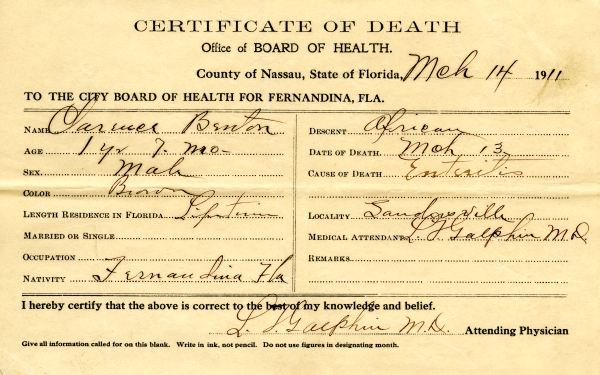 CERTIFICATE OF DEATH
Office of BOARD OF HEALTH.
County of Nassau, State of Florida, Mch 14 1911
TO THE CITY BOARD OF HEALTH FOR FERNANDINA, FLA.
NAME Clarence Benton
AGE 1 yr 7 mo-
SEX. Male
COLOR Brown
LENGTH RESIDENCE IN FLORIDA. Lifetime
MARRIED OR SINGLE
OCCUPATION
NATIVITY Fernandina Fla
DESCENT African
DATE OF DEATH. Mch 13
CAUSE OF DEATH Enteritis
LOCALITY Sandersville
MEDICAL ATTENDANT. Galphin M.D.
REMARKS
I hereby certify that the above is correct to the best of my knowledge and belief.
Galphin M.D. Attending Physician
Give all information called for on this blank. Write in ink, not pencil. Do not use figures in designating month.